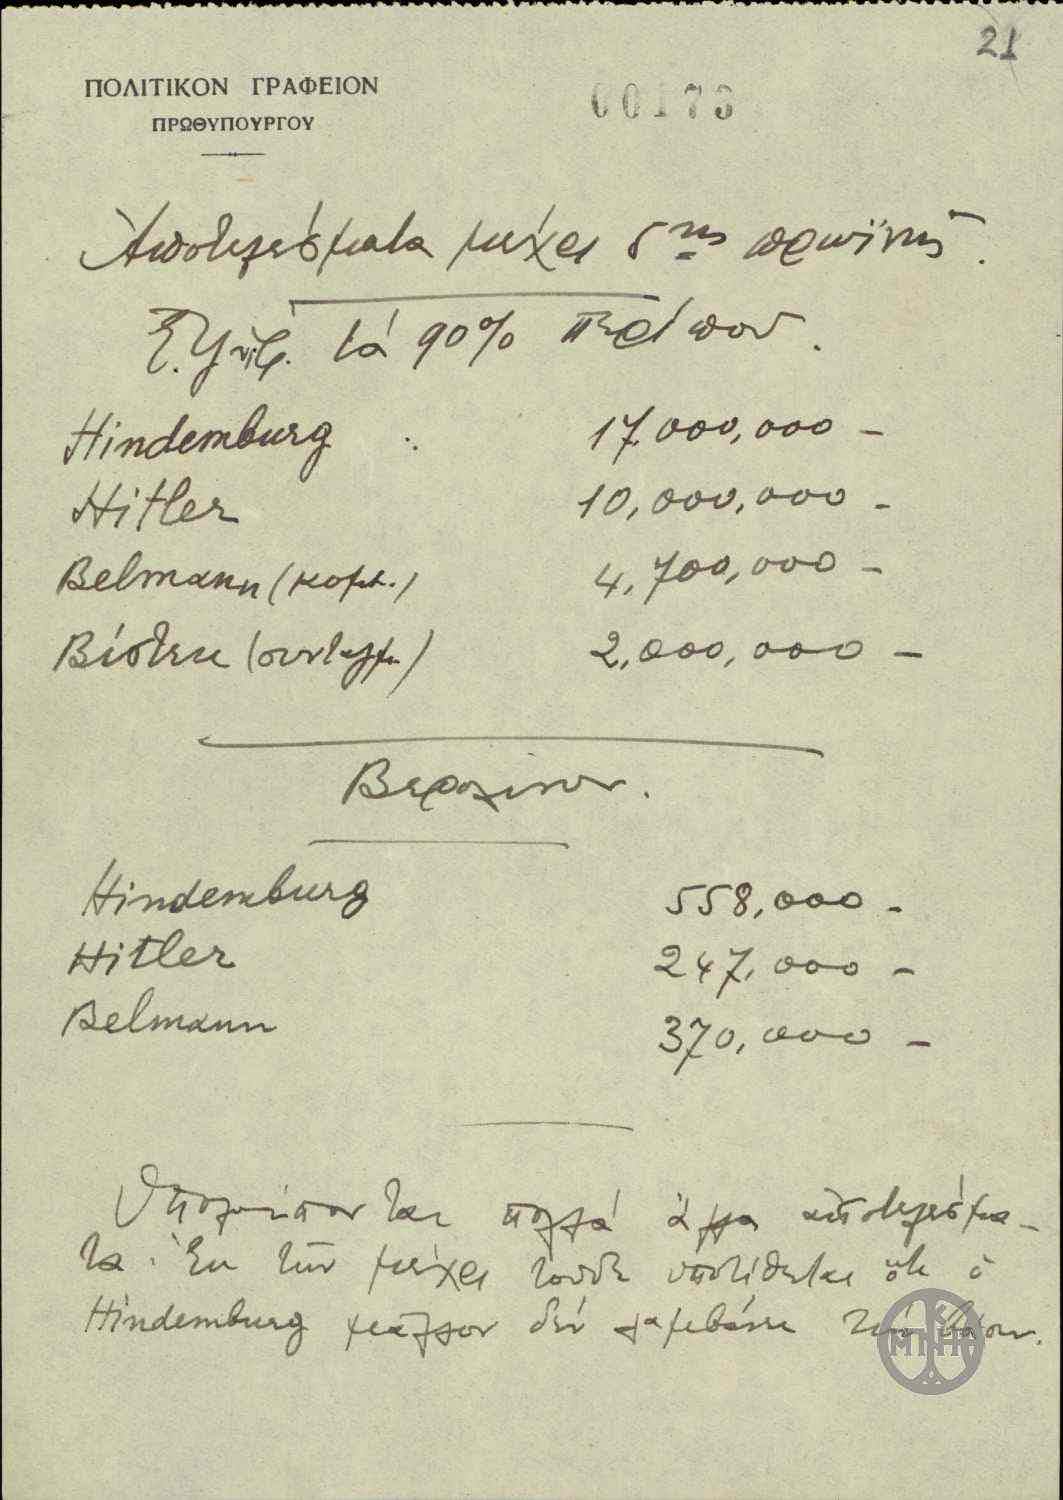 21
ΠΟΛΙΤΙΚΟΝ ΓΡΑΦΕΙΟΝ
ΠΡΩΘΥΠΟΥΡΓΟΥ
00173
Ἀποτελέσματα μέχρι 5ης πρωϊνῆς.
τά 90% περίπου.
Hindemburg : 17,000,000 –
Hitler 10,000,000 –
Belmann (κομμ.) 4,700,000 –
Βίστεκ (συνταγμ.) 2,000,000 –
Βερολίνον.
Hindemburg 558,000 –
Hitler 247,000 –
Belmann 370,000 –
Ὑπολείπονται πολλά ἄλλα ἀποτελέσμα-
τα. Ἐκ τῶν μέχρι τοῦδε ὑποτίθεται ὅτι ὁ
Hindemburg μᾶλλον δέν λαμβάνει τήν
ΜΠΗ